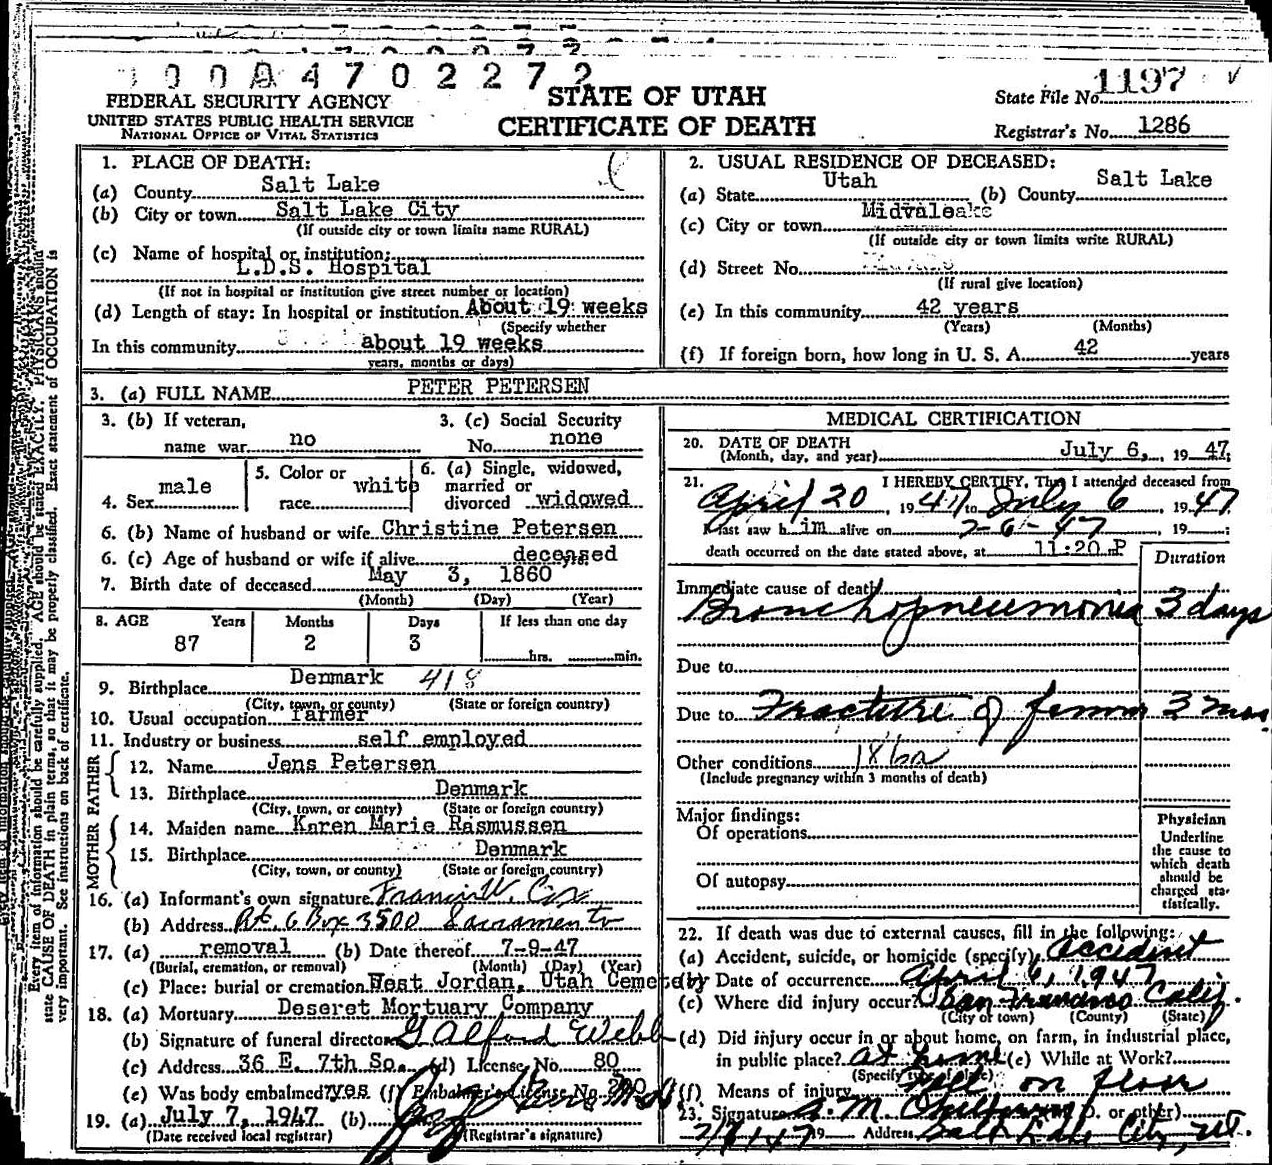 100A4702272
FEDERAL SECURITY AGENCY
UNITED STATES PUBLIC HEALTH SERVICE
NATIONAL OFFICE OF VITAL STATISTICS
STATE OF UTAH
CERTIFICATE OF DEATH
State File No. 1197
Registrar's No. 1286
1. PLACE OF DEATH:
(a) County Salt Lake
(b) City or town Salt Lake City
(If outside city or town limits name RURAL)
(c) Name of hospital or institution:
L.D.S. Hospital
(If not in hospital or institution give street number or location)
(d) Length of stay: In hospital or institution About 19 weeks
(Specify whether
In this community about 19 weeks
years, months or days)
2. USUAL RESIDENCE OF DECEASED:
(a) State Utah (b) County Salt Lake
(c) City or town Midvale
(If outside city or town limits write RURAL)
(d) Street No.
(If rural give location)
(e) In this community 42 years
(Years) (Months)
(f) If foreign born, how long in U. S. A. 42 years
3. (a) FULL NAME PETER PETERSEN
3. (b) If veteran,
name war no
3. (c) Social Security
No. none
4. Sex male
5. Color or
race white
6. (a) Single, widowed,
married or
divorced widowed
6. (b) Name of husband or wife Christine Petersen
6. (c) Age of husband or wife if alive deceased
7. Birth date of deceased May 3, 1860
(Month) (Day) (Year)
8. AGE Years Months Days If less than one day
87 2 3 hrs. min.
9. Birthplace Denmark 418
(City, town, or county) (State or foreign country)
10. Usual occupation farmer
11. Industry or business self employed
FATHER
12. Name Jens Petersen
13. Birthplace Denmark
(City, town, or county) (State or foreign country)
MOTHER
14. Maiden name Karen Marie Rasmussen
15. Birthplace Denmark
(City, town, or county) (State or foreign country)
16. (a) Informant's own signature Francis W. Cox
(b) Address Rt. 6 Box 3500 Sacramento
17. (a) removal (b) Date thereof 7-9-47
(Burial, cremation, or removal) (Month) (Day) (Year)
(c) Place: burial or cremation West Jordan, Utah Cemetery
18. (a) Mortuary Deseret Mortuary Company
(b) Signature of funeral director G Alford Webb
(c) Address 36 E. 7th So. (d) License No. 80
(e) Was body embalmed? yes (f) Embalmer's License No.
19. (a) July 7, 1947 (b)
(Date received local registrar) (Registrar's signature)
MEDICAL CERTIFICATION
20. DATE OF DEATH
(Month, day, and year) July 6, 1947;
21. I HEREBY CERTIFY, That I attended deceased from
April 20, 1947 to July 6, 1947
I last saw him alive on 7-6-47, 19
death occurred on the date stated above, at 11:20 P
Duration
Immediate cause of death
Bronchopneumonia 3 days
Due to
Due to Fracture of femur 3 mos.
Other conditions 186a
(Include pregnancy within 3 months of death)
Major findings:
Of operations
Of autopsy
Physician
Underline
the cause to
which death
should be
charged sta-
tistically.
22. If death was due to external causes, fill in the following:
(a) Accident, suicide, or homicide (specify) Accident
(b) Date of occurrence April 6, 1947
(c) Where did injury occur? San Francisco Calif.
(City or town) (County) (State)
(d) Did injury occur in or about home, on farm, in industrial place,
in public place? at home (e) While at Work?
(Specify type of place)
(f) Means of injury Fall on floor
23. Signature A. M. (M.D. or other)
7/7/47 19 Address Salt Lake City, Ut.
Every item of information should be carefully supplied. AGE should be stated EXACTLY. PHYSICIANS should
state CAUSE OF DEATH in plain terms, so that it may be properly classified. Exact statement of OCCUPATION is
very important. See instructions on back of certificate.